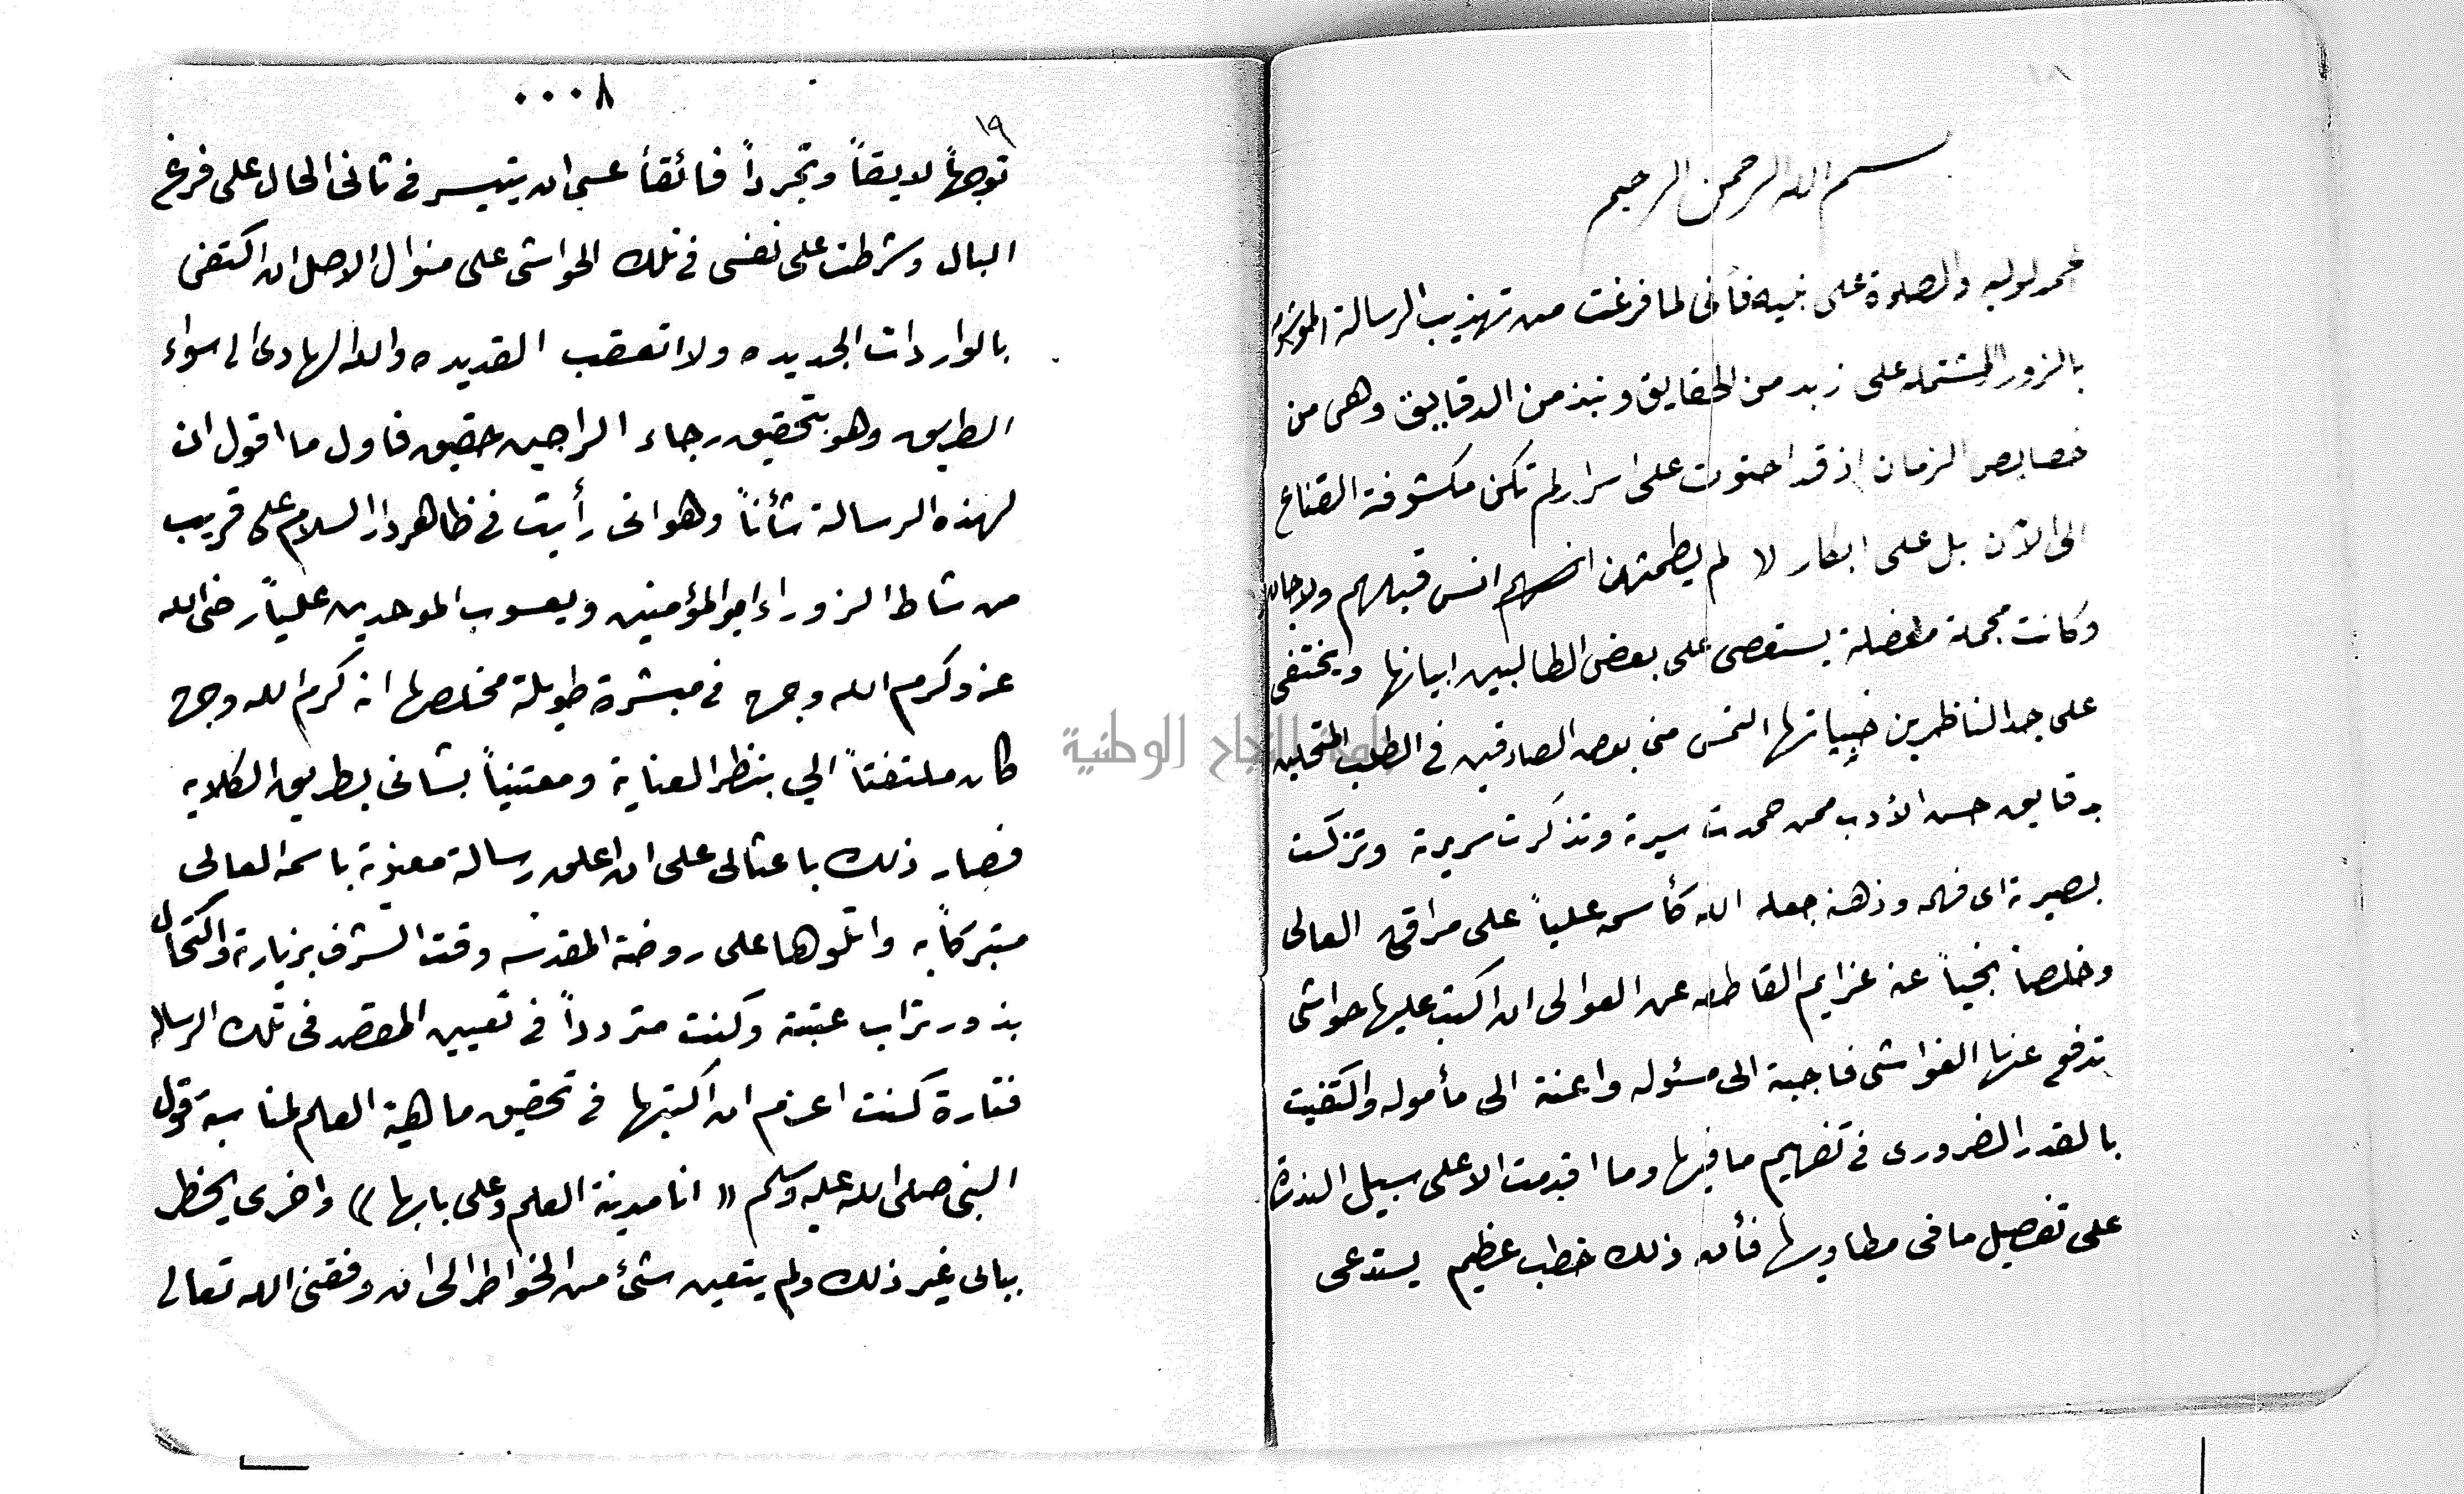 ١٨
بسم الله الرحمن الرحيم
الحمد لوليه والصلوة على نبيه فأنى لما فرغت من تهذيب الرسالة الموسومة
بالزوراء المشتمله على زبد من الحقايق ونبذ من الدقايق وهى من
خصايص الزمان اذ قد احتوت على اسرار لم تكن مكشوفة القناع
الى الآن بل على ابكار لا لم يطمثهن انس قبلهم ولا جان
وكانت مجملة معضلة يستعصى على بعض الطالبين ابيانها ويختفى
على جد الناظرين خبياتها التمس منى بعض الصادقين فى الطلب المتحلين
بدقايق حسن الأدب ممن حمدت سيرة وتذكرت سريرة وتزكت
بصيرة اى فهمه وذهنه جعله الله كأسمه علياً على مراقى العالى
وخلصه نجياً عنه عزايم القاطعه عن العوالى ان اكتب عليها حواشى
تدفع عنها الغواشى فاجبته الى مسئوله واعنته الى مأموله واكتفيت
بالقدر الضرورى فى تفهيم ما فيها وما اقدمت الا على سبيل الندرة
على تفصيل ما فى مطاويها فأن ذلك خطب عظيم يستدعى
٠٠٠٨
١٩
توجهاً لايقاً وتجرداً فائقاً عسى ان يتيسر فى ثانى الحال على فرغ
البال وشرطت على نفسى فى تلك الحواشى على منوال الاصل ان اكتفى
بالواردات الجديده ولا اتعقب القديده والله الهادى الى سواء
الطريق وهو بتحقيق رجاء الراجين حقيق فاول ما اقول ان
لهذه الرسالة شأناً وهو انى رأيت فى ظاهر دار السلام على قريب
من شاط الزوراء امير المؤمنين ويعسوب الموحدين علياً رضى الله
عنه وكرم الله وجهه فى مبشرة طويلة مخلصها انه كرم الله وجهه
كان ملتفتاً الي بنظر العناية ومعتنياً بشانى بطريق الكلايه
فصار ذلك باعثا لى على ان اعلق رسالة معنونة باسمه العالى
متبركاً به واتلوها على روضة المقدسه وقت التشرف بزيارته واكتحال
بذور تراب عتبته وكنت متردداً فى تعيين المقصد فى تلك الرساله
فتارة كنت اعزم ان اكتبها فى تحقيق ماهية العلم لمناسبة قول
النبى صلى الله عليه وسلم « انا مدينة العلم وعلى بابها » واخرى يخطر
ببالى غير ذلك ولم يتعين شئ من الخواطر الى ان وفقنى الله تعالى
جامعة النجاح الوطنية